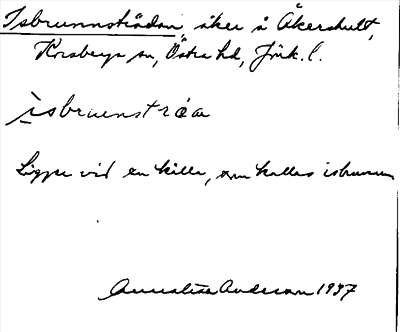 Isbrunnstrådan, åker å Åkershult,
Korsberga sn, Östra hd, Jönk. l.
isbruenstråa
Ligger vid en källa, som kallas isbrunnen
Annalisa Anderson 1937